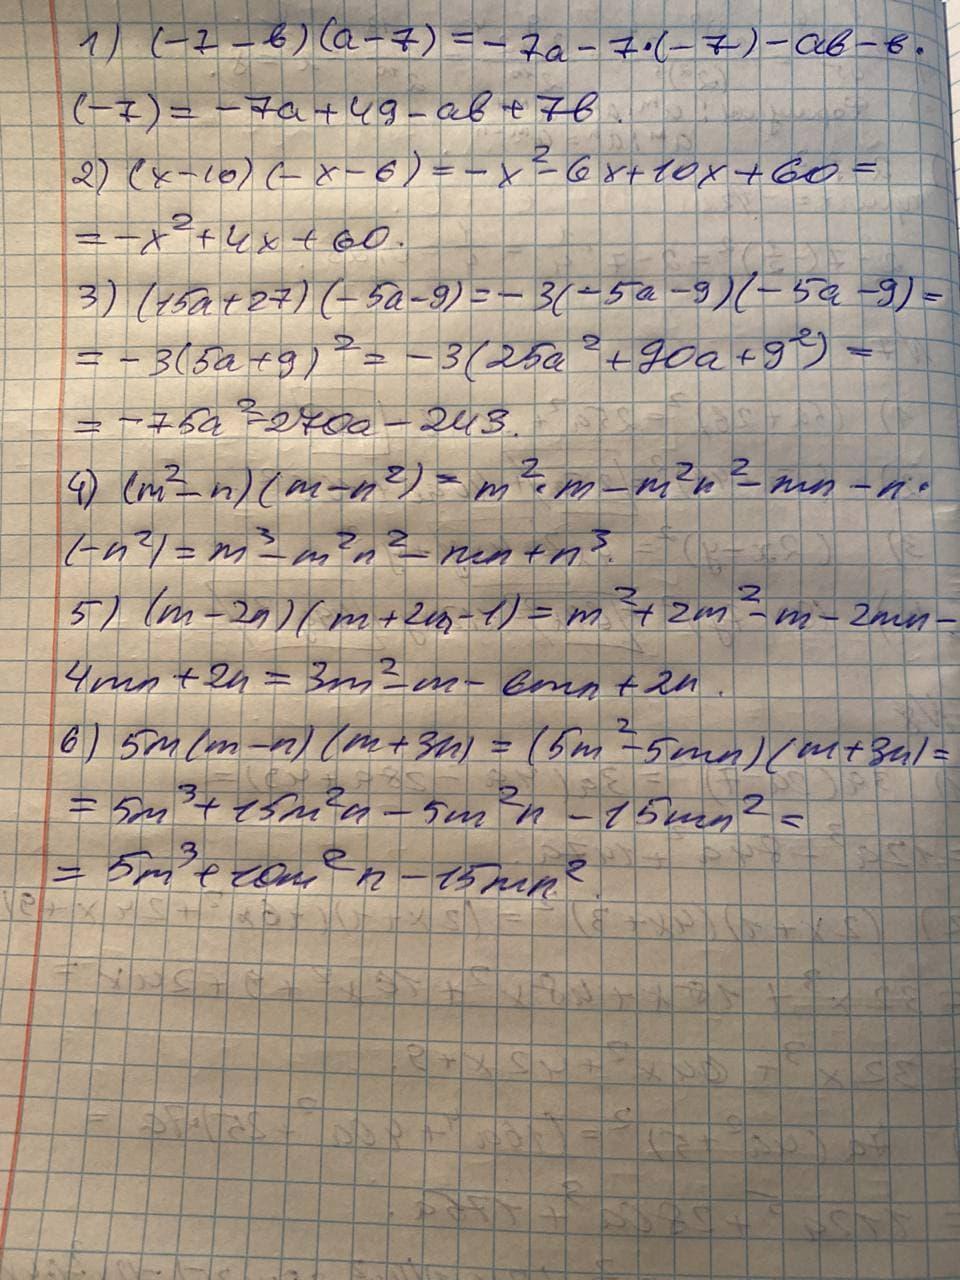 1) (-7-в)(а-7)=-7а-7·(-7)-ав-в·
(-7)=-7а+49-ав+7в.
2) (x-10)(-x-6)=-x²-6x+10x+60=
=-x²+4x+60.
3) (15а+27)(-5а-9)=-3(-5а-9)(-5а-9)=
=-3(5а+9)²=-3(25а²+90а+9²)=
=-75а²-270а-243.
4) (m²-n)(m-n²)=m²·m-m²n²-mn-n·
(-n²)=m³-m²n²-mn+n³.
5) (m-2n)(m+2m-1)=m²+2m²-m-2mn-
4mn+2n=3m²-m-6mn+2n.
6) 5m(m-n)(m+3n)=(5m²-5mn)(m+3n)=
=5m³+15m²n-5m²n-15mn²=
=5m³+10m²n-15mn².